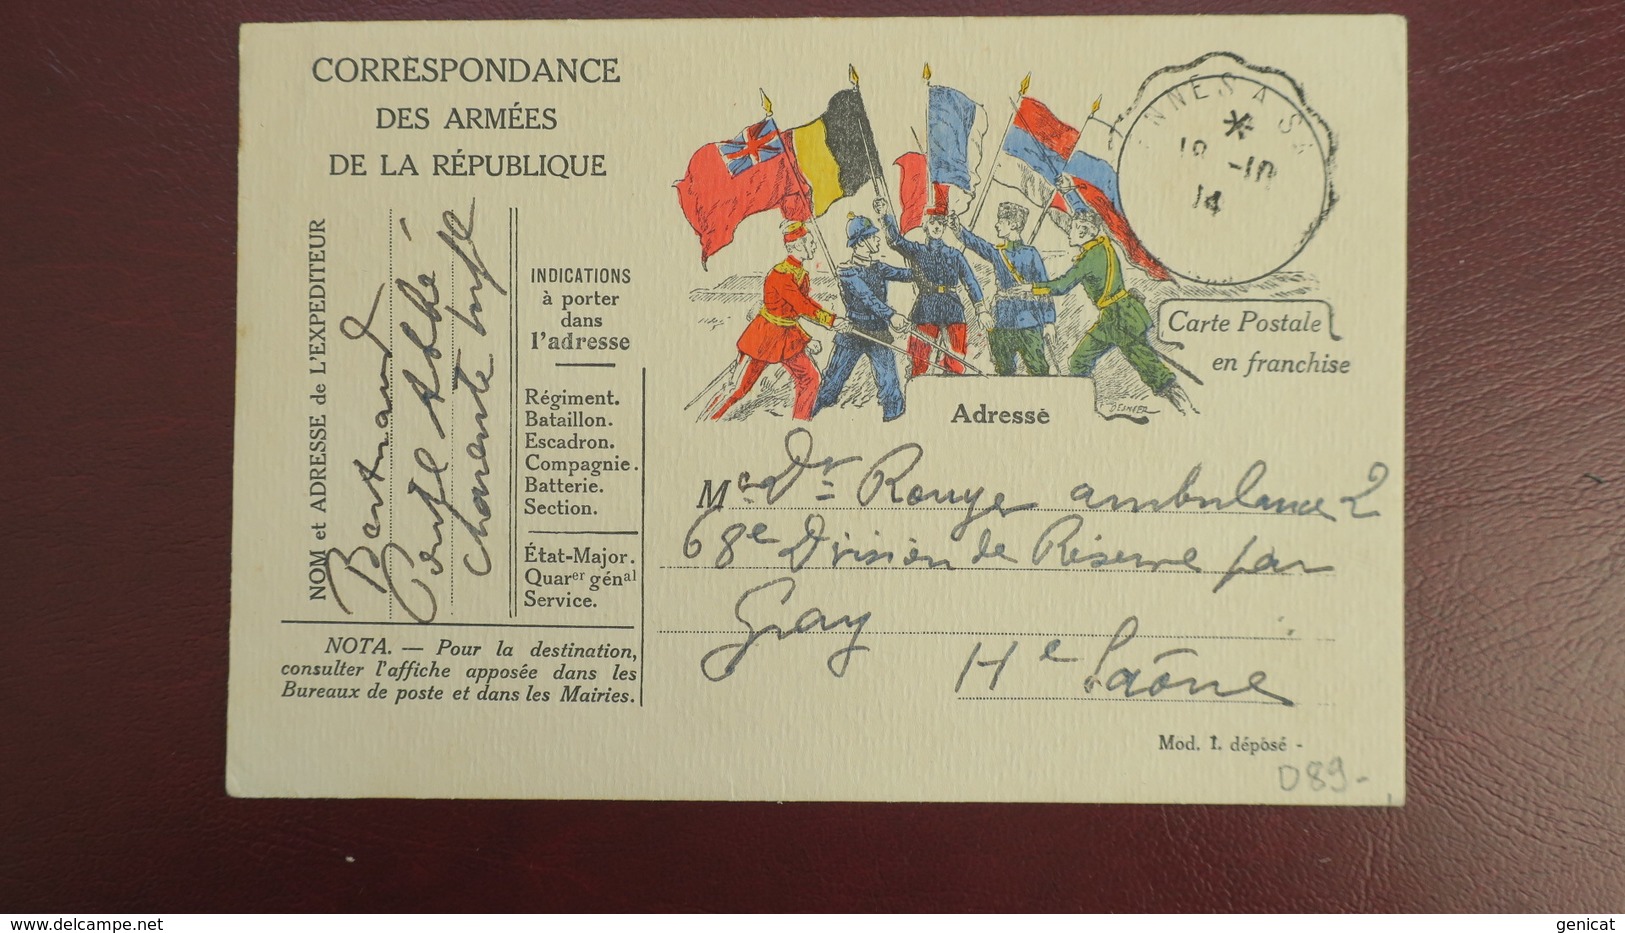 CORRESPONDANCE
DES ARMÉES
DE LA RÉPUBLIQUE
NOM et ADRESSE de L'EXPÉDITEUR
Bertrand
Charente
INDICATIONS
à porter
dans
l'adresse
Régiment.
Bataillon.
Escadron.
Compagnie.
Batterie.
Section.
État-Major.
Quarer génal
Service.
NOTA. — Pour la destination,
consulter l'affiche apposée dans les
Bureaux de poste et dans les Mairies.
NNES A S
18 -10
14
Carte Postale
en franchise
Adresse
M Dr Rouyer ambulance 2
68e Division de Réserve par
Gray
Hte Saône
Mod. 1. déposé -
D89-
genicat
delcampe.net